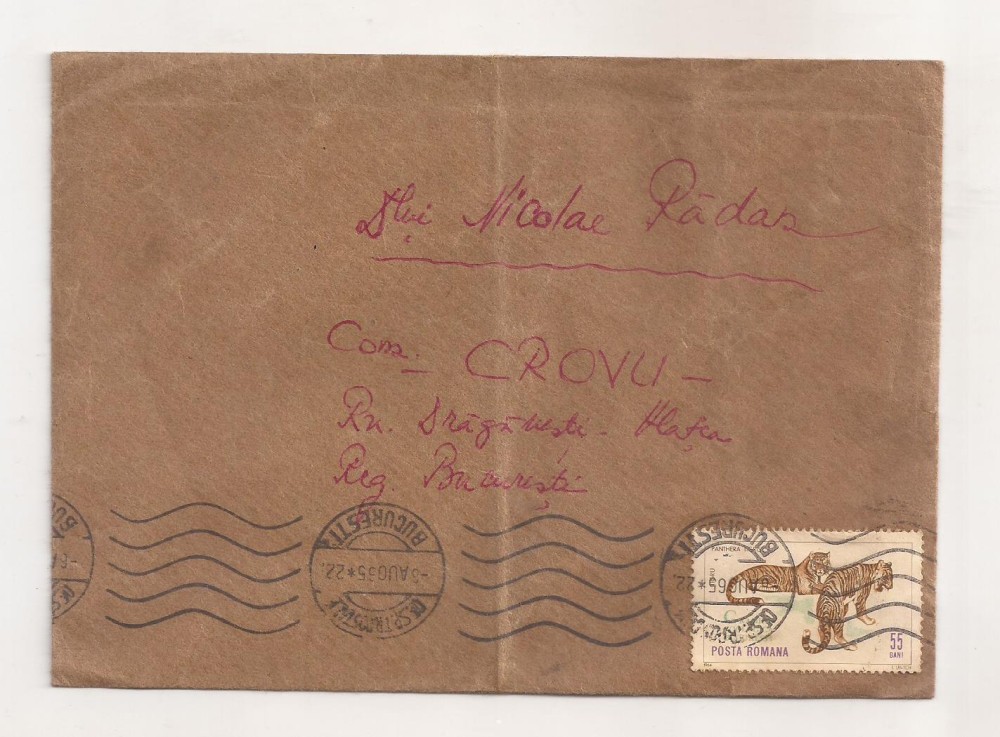 Dlui Nicolae Rădas
Com. CROVU -
Rn. Drăgănești - Vlașca
Reg. București
BUCUREȘTI
-6 AUG 65 * 22
BUCUREȘTI
AUG 65 * 22
PANTHERA
POSTA ROMANA
55
BANI